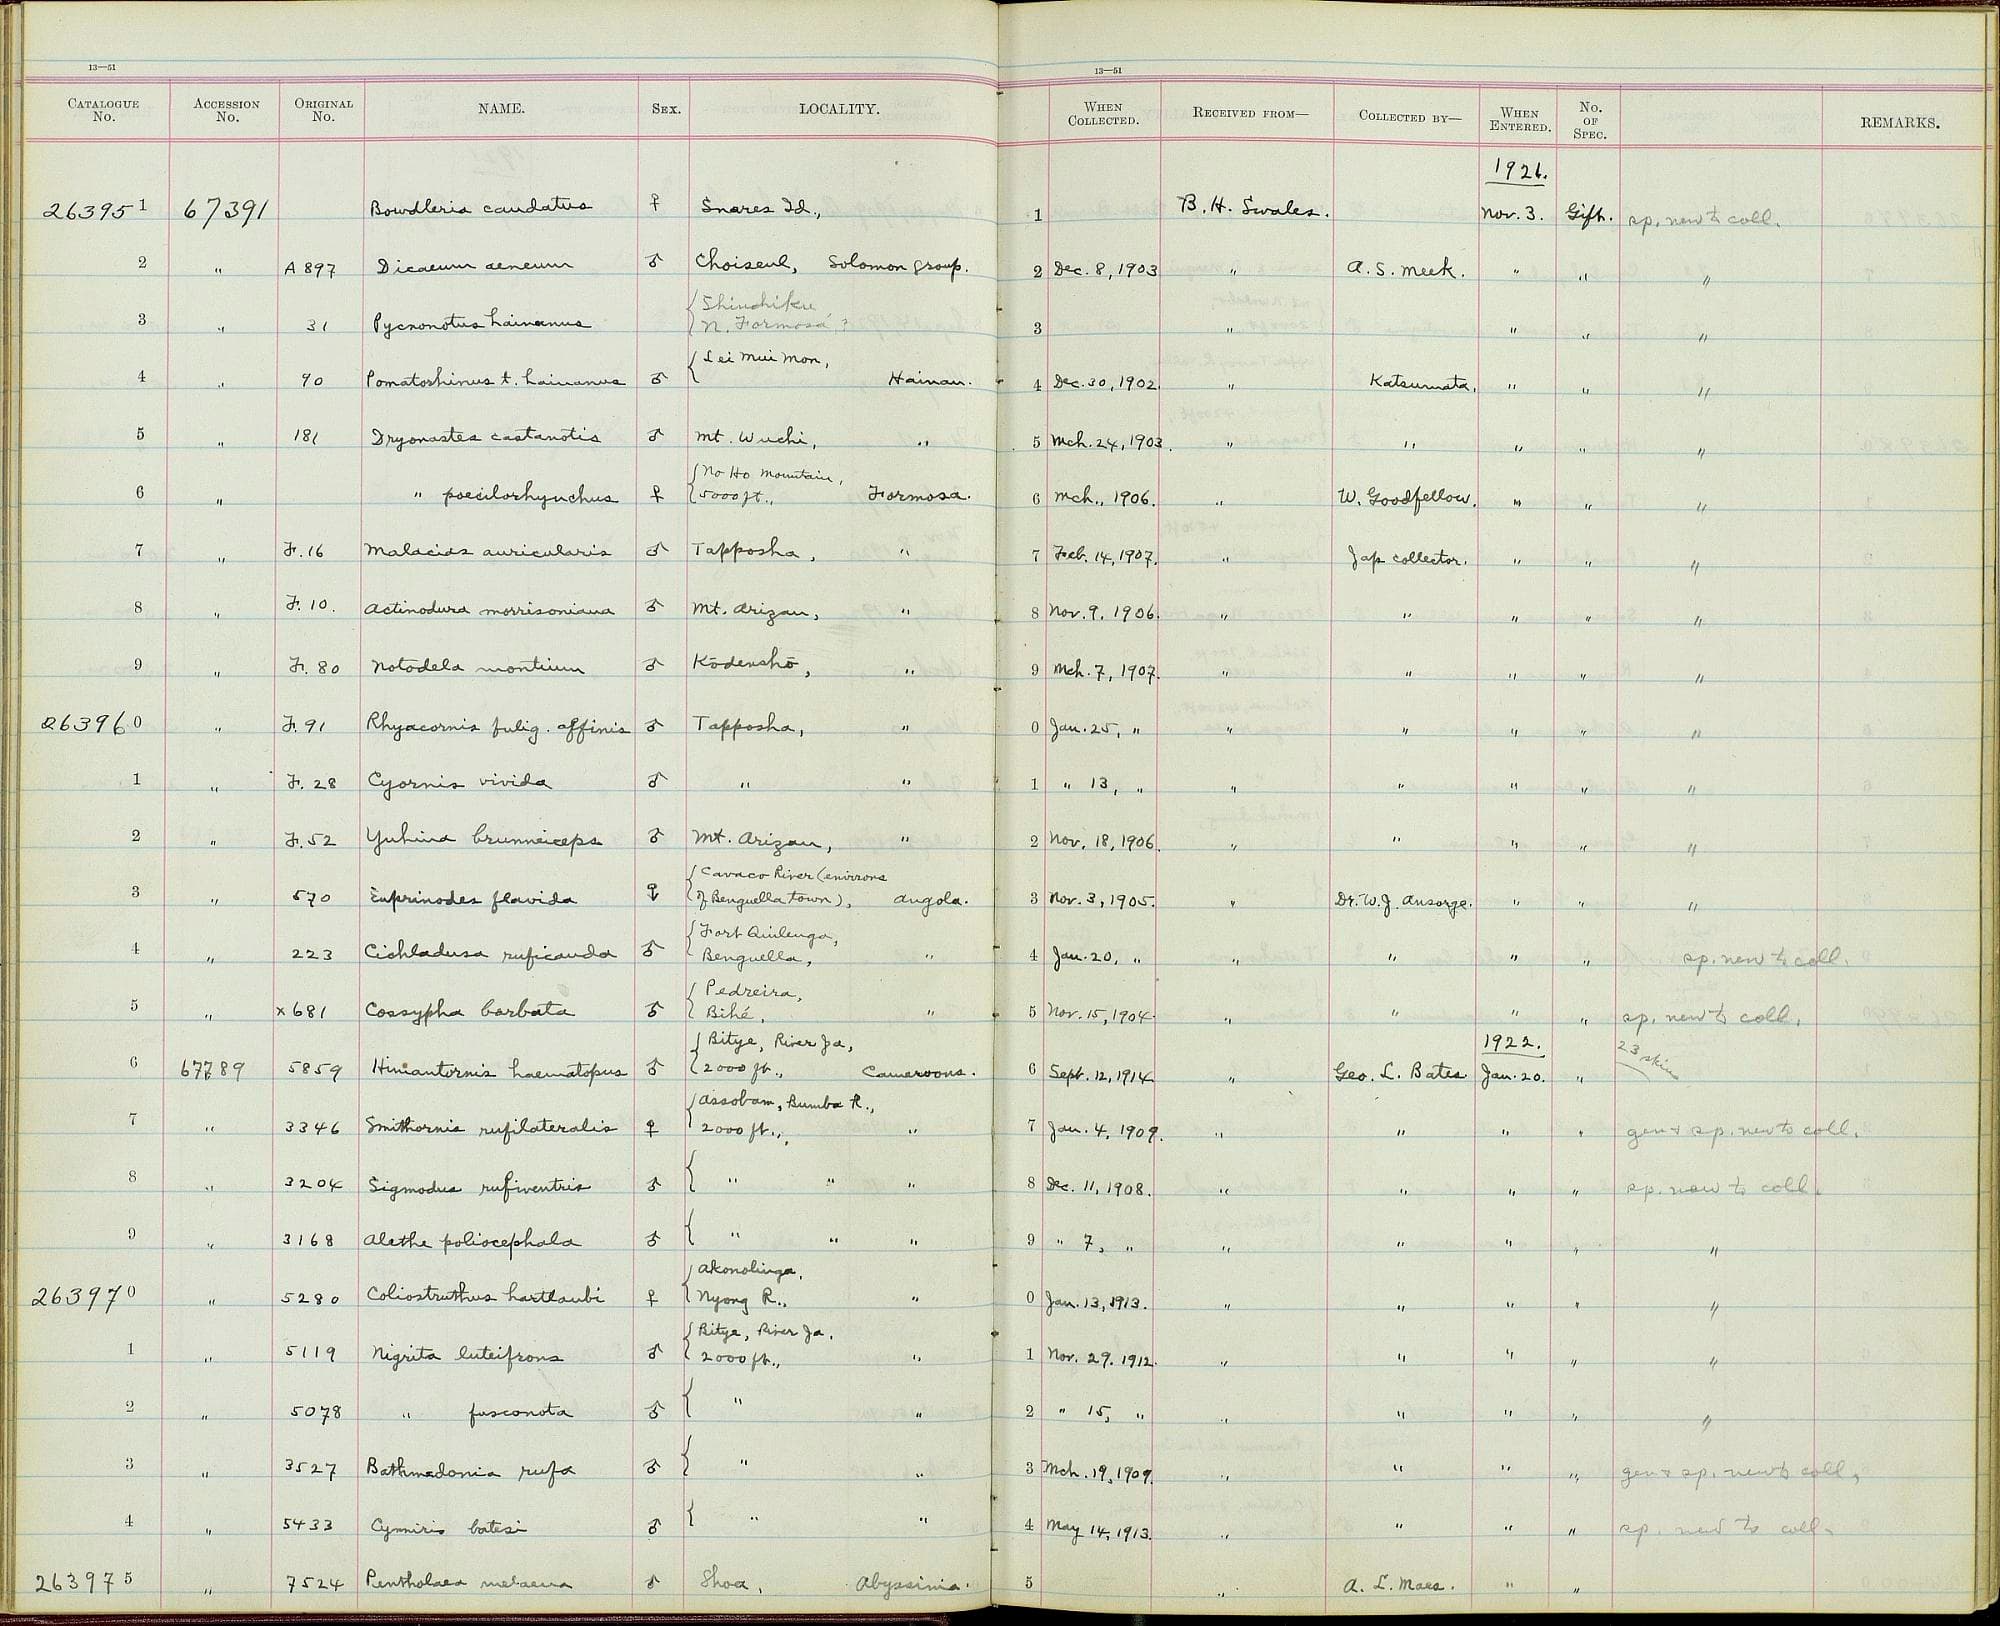 13—51
CATALOGUE No. ACCESSION No. ORIGINAL No. NAME. SEX. LOCALITY.
13—51
WHEN COLLECTED. RECEIVED FROM— COLLECTED BY— WHEN ENTERED. No. OF SPEC. REMARKS.
1926.
263951 67391 Bowdleria caudatus ♀ Snares Id., 1 B. H. Swales. Nov. 3. Gift. sp. new to coll.
2 " A 897 Dicaeum aeneum ♂ Choiseul, Solomon Group. 2 Dec. 8, 1903 " A. S. Meek. " " "
3 " 31 Pycnonotus hainanus { Shinchiku N. Formosa ? 3 " " " "
4 " 90 Pomatorhinus t. hainanus ♂ { Lei Mui Mon, Hainan. 4 Dec. 30, 1902. " Katsumata. " " "
5 " 181 Dryonastes castanotis ♂ Mt. Wuchi, " 5 Mch. 24, 1903. " " " " "
6 " " poecilorhynchus ♀ { No Ho Mountain, 5000 ft., Formosa. 6 Mch., 1906. " W. Goodfellow. " " "
7 " F. 16 Malacias auricularis ♂ Tapposha, " 7 Feb. 14, 1907. " Jap collector. " " "
8 " F. 10. Actinodura morrisoniana ♂ Mt. Arizan, " 8 Nov. 9, 1906. " " " " "
9 " F. 80 Notodela montium ♂ Kōdenshō, " 9 Mch. 7, 1907. " " " " "
263960 " F. 91 Rhyacornis fulig. affinis ♂ Tapposha, " 0 Jan. 25, " " " " " "
1 " F. 28 Cyornis vivida ♂ " " 1 " 13, " " " " " "
2 " F. 52 Yuhina brunneiceps ♂ Mt. Arizan, " 2 Nov. 18, 1906. " " " " "
3 " 570 Euprinodes flavida ♀ { Cavaco River (environs of Benguella town), Angola. 3 Nov. 3, 1905. " Dr. W. J. Ansorge. " " "
4 " 223 Cichladusa ruficauda ♂ { Fort Quilenga, Benguella, " 4 Jan. 20, " " " " " sp. new to coll.
5 " x 681 Cossypha barbata ♂ { Pedreira, Bihé, " 5 Nov. 15, 1904. " " " " sp. new to coll.
1922.
6 67789 5859 Himantornis haematopus ♂ { Bitye, River Ja, 2000 ft., Cameroons. 6 Sept. 12, 1914. " Geo. L. Bates. Jan. 20. " 23 skins
7 " 3346 Smithornis rufilateralis ♀ { Assobam, Bumba R., 2000 ft., " 7 Jan. 4, 1909. " " " " gen & sp. new to coll.
8 " 3204 Sigmodus rufiventris ♂ { " " " 8 Dec. 11, 1908. " " " " sp. new to coll.
9 " 3168 Alethe poliocephala ♂ { " " " 9 " 7, " " " " " "
263970 " 5280 Coliostruthus hartlaubi ♀ { Akonolinga, Nyong R., " 0 Jan. 13, 1913. " " " " "
1 " 5119 Nigrita luteifrons ♂ { Bitye, River Ja, 2000 ft., " 1 Nov. 29. 1912. " " " " "
2 " 5078 " fusconota ♂ { " " 2 " 15, " " " " " "
3 " 3527 Bathmedonia rufa ♂ { " " 3 Mch. 19, 1909. " " " " gen & sp. new to coll.
4 " 5433 Cynniris batesi ♂ { " " 4 May 14, 1913. " " " " sp. new to coll.
263975 " 7524 Pentholaea melaena ♂ Shoa, Abyssinia. 5 " A. L. Maes. " "